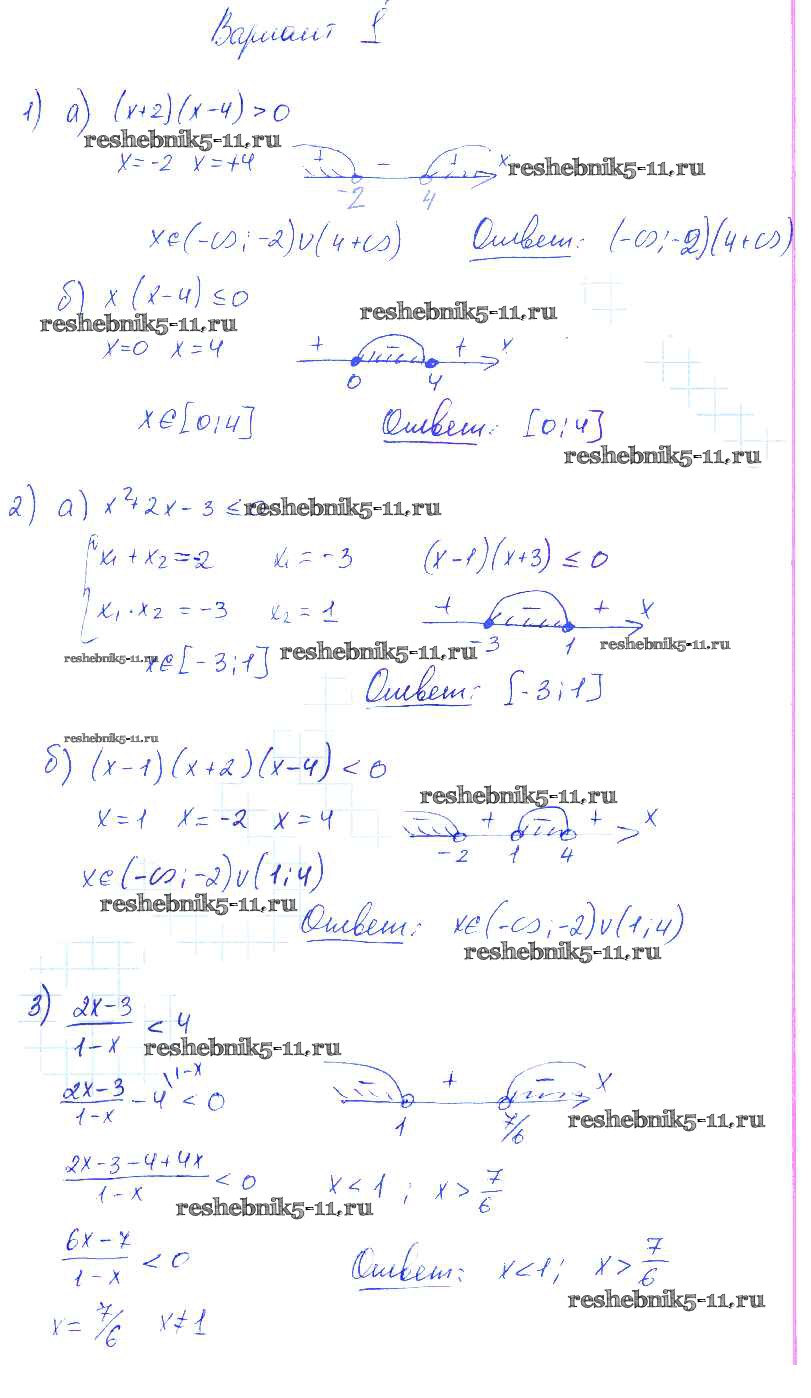 Вариант 1
1) а) (x+2)(x-4) > 0
reshebnik5-11.ru
x = -2 x = +4
+ - + x
reshebnik5-11.ru
-2 4
x∈(-∞; -2)∪(4+∞) Ответ: (-∞; -2)(4+∞)
б) x (x-4) ≤ 0
reshebnik5-11.ru reshebnik5-11.ru
x=0 x=4 + - + x
0 4
x∈[0;4] Ответ: [0;4]
reshebnik5-11.ru
2) а) x²+2x-3 ≤
reshebnik5-11.ru
x₁ + x₂ = -2 x₁ = -3 (x-1)(x+3) ≤ 0
x₁ · x₂ = -3 x₂ = 1 + - + x
-3 1
reshebnik5-11.ru reshebnik5-11.ru reshebnik5-11.ru
x∈[-3;1]
Ответ: [-3;1]
reshebnik5-11.ru
б) (x-1)(x+2)(x-4) < 0
reshebnik5-11.ru
x=1 x=-2 x=4 + - + x
-2 1 4
x∈(-∞; -2)∪(1;4)
reshebnik5-11.ru
Ответ: x∈(-∞; -2)∪(1;4)
reshebnik5-11.ru
3) (2x-3)/(1-x) < 4
reshebnik5-11.ru
(2x-3)/(1-x) - 4 \1-x < 0 - + - x
1 7/6
reshebnik5-11.ru
(2x-3-4+4x)/(1-x) < 0 x<1; x> 7/6
reshebnik5-11.ru
(6x-7)/(1-x) < 0 Ответ: x<1; x> 7/6
reshebnik5-11.ru
x= 7/6 x≠1